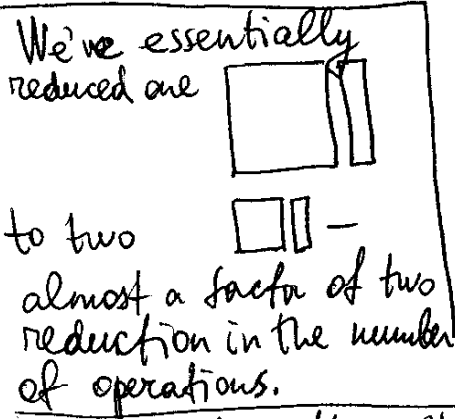 We've essentially
reduced one
to two —
almost a factor of two
reduction in the number
of operations.